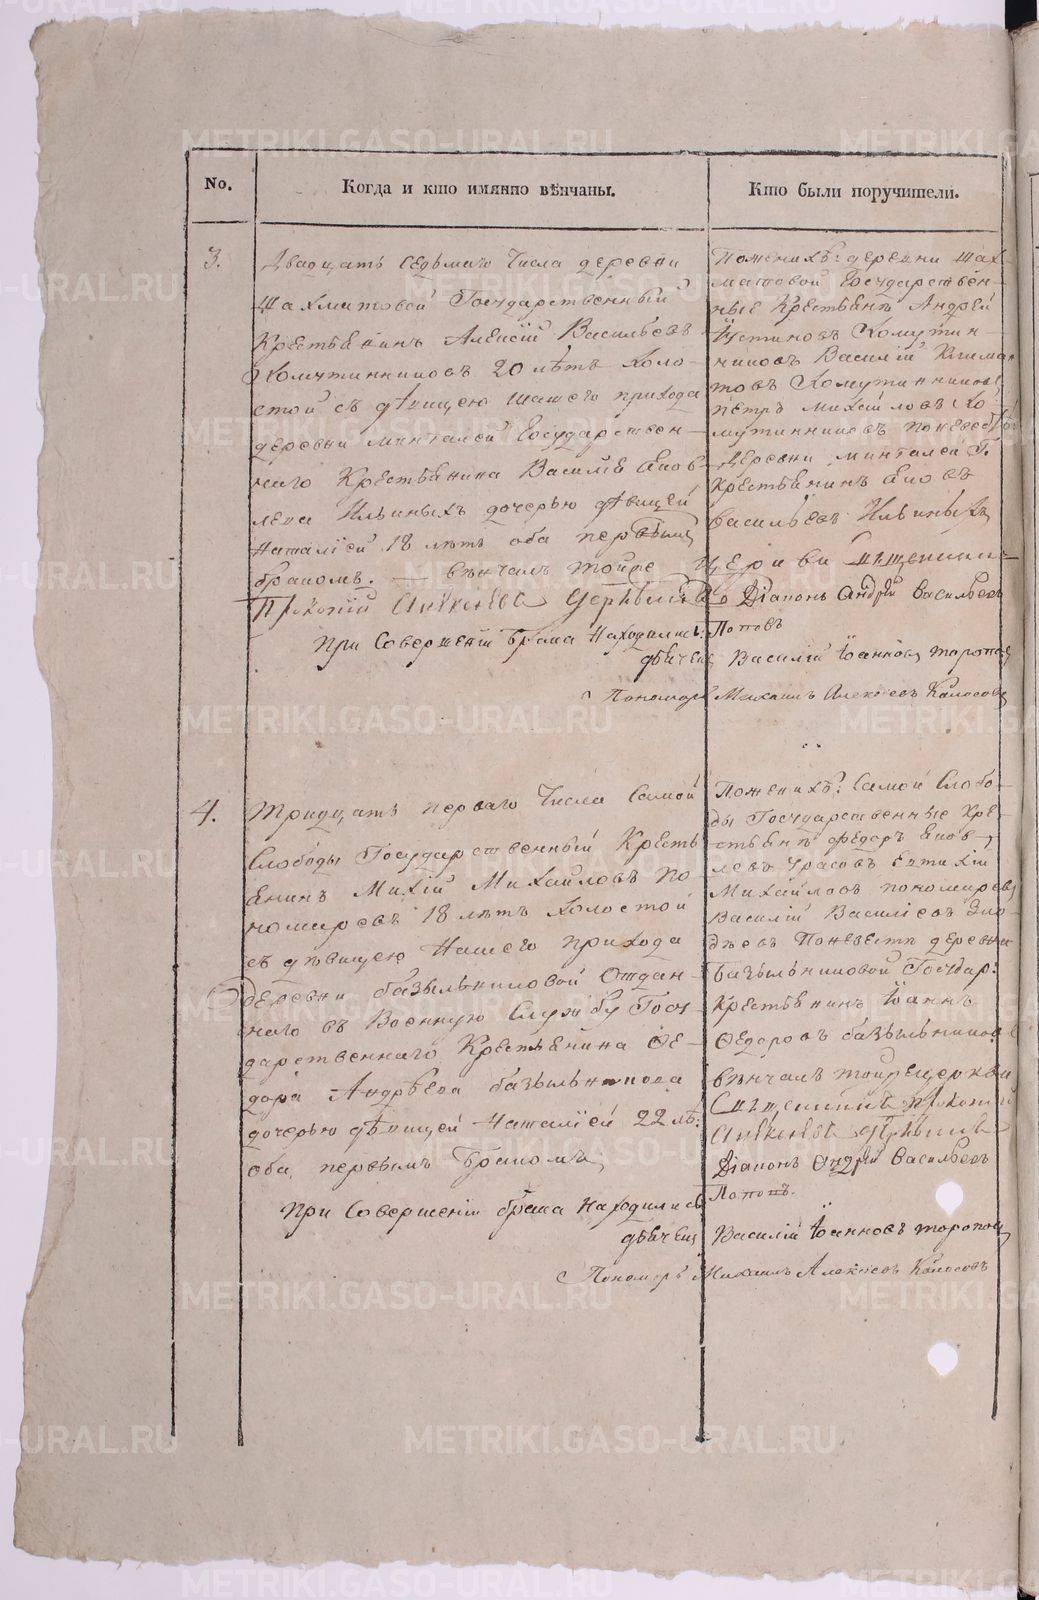 No.
Когда и кто имянно вѣнчаны.
Кто были поручители.
3.
Двадцать седьмаго Числа деревни
Шахматовой Государственный
Крестьянинъ Алексій Васильевъ
Хомутинниковъ 20 лѣтъ холо-
стой съ дѣвицею нашего прихода
деревни Государствен-
наго Крестьянина Василія Яков-
лева Ильиныхъ дочерью дѣвицей
Наталіей 18 лѣтъ оба первымъ
бракомъ. — Вѣнчалъ тойже
При Совершеніи брака Находились:
Поженихѣ: деревни Шах-
матовой Государствен-
ные Крестьяне Андрей
Устиновъ Хомутин-
никовъ Василій
Хомутинниковъ
Петръ Михайловъ Хо-
мутинниковъ поневестѣ
деревни Г.
Крестьянинъ Яковъ
Васильевъ Ильиныхъ
Церкви Священникъ
Діаконъ Андрей Васильевъ
Поповъ
дьячекъ Василій Іоанновъ Тороповъ
Пономарь Михаилъ Алексѣевъ
4.
Тридцать перваго Числа Самой
Слободы Государственный Кресть
янинъ Михайловъ По
номаревъ 18 лѣтъ холостой
съ дѣвицею Нашего прихода
деревни Базыльниковой Отдан-
наго въ Военную Службу Госу-
дарственнаго Крестьянина Ѳе-
дора Андрѣева Базыльникова
дочерью дѣвицей Наталіей 22 лѣ:
оба первымъ бракомъ
При Совершеніи брака Находились
Поженихѣ: Самой Слобо-
ды Государственные Кре-
стьяне Федоръ Яков-
левъ Евтихій
Михайловъ пономаревъ
Василій Василіевъ
Поневестѣ деревни
Базыльниковой Государ:
Крестьянинъ Іоаннъ
Ѳедоровъ Базыльниковъ
вѣнчалъ тойже церкви
Священникъ Прокопій
Діаконъ Андрей Васильевъ
Поповъ.
дьячекъ Василій Іоанновъ Тороповъ
Пономарь Михаилъ Алексѣевъ
METRIKI.GASO-URAL.RU